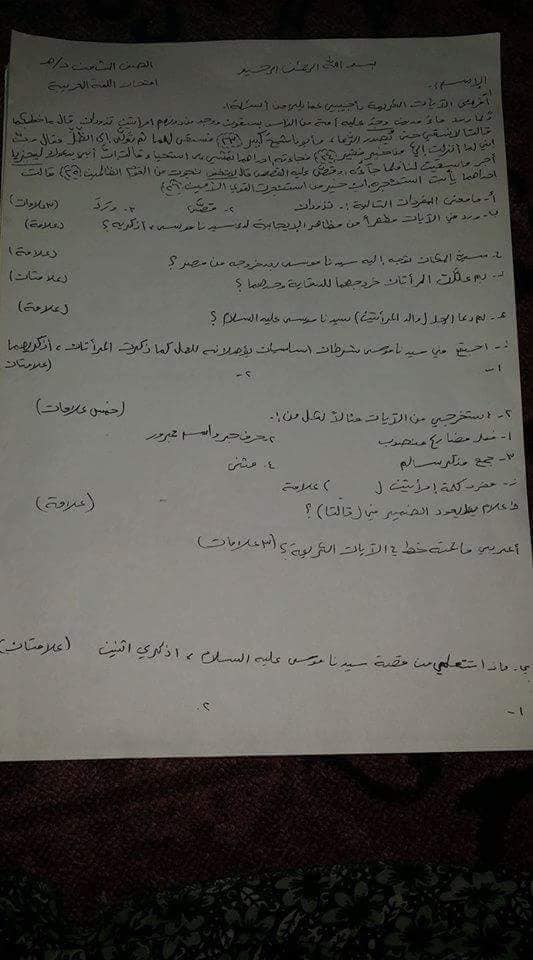 بسم الله الرحمن الرحيم
الصف الثامن
امتحان اللغة العربية
الاسم:
اقرئي الآيات القرآنية ثم أجيبي عما يليها من أسئلة:
ولما ورد ماء مدين وجد عليه أمة من الناس يسقون ووجد من دونهم امرأتين تذودان قال ما خطبكما
قالتا لا نسقي حتى يصدر الرعاء وأبونا شيخ كبير (٢٣) فسقى لهما ثم تولى إلى الظل فقال رب
إني لما أنزلت إلي من خير فقير (٢٤) فجاءته إحداهما تمشي على استحياء قالت إن أبي يدعوك ليجزيك
أجر ما سقيت لنا فلما جاءه وقص عليه القصص قال لا تخف نجوت من القوم الظالمين (٢٥) قالت
إحداهما يا أبت استأجره إن خير من استأجرت القوي الأمين (٢٦)
أ- ما معنى المفردات التالية: تذودان ٢- قصص ٣- ورد (٣ علامات)
ب- ورد في الآيات مظهراً من مظاهر الإيجابية لدى سيدنا موسى، اذكريه؟ (علامة)
المكان توجه إليه سيدنا موسى بعد خروجه من مصر؟ (علامة)
د- بم عللت المرأتان خروجهما للسقاية وحدهما؟ (علامتان)
لم دعا الرجل (والد المرأتين) سيدنا موسى عليه السلام؟ (علامة)
في سيدنا موسى شرطان أساسيان للعمل كما ذكرت المرأتان، اذكريهما (علامتان)
١- ٢-
٢- استخرجي من الآيات مثالاً لكل من: (خمس علامات)
١- فعلا مضارع منصوب ٢. حرف جر واسم مجرور
٣- جمع مذكر سالم ٤. مثنى
مفرد كلمة امرأتين ( ) علامة
علام يعود الضمير في (قالتا)؟ (علامة)
أعربي ما تحته خط في الآيات القرآنية؟ (٣ علامات)
ماذا استعلمي من قصة سيدنا موسى عليه السلام، اذكري اثنين (علامتان)
١- ٢.